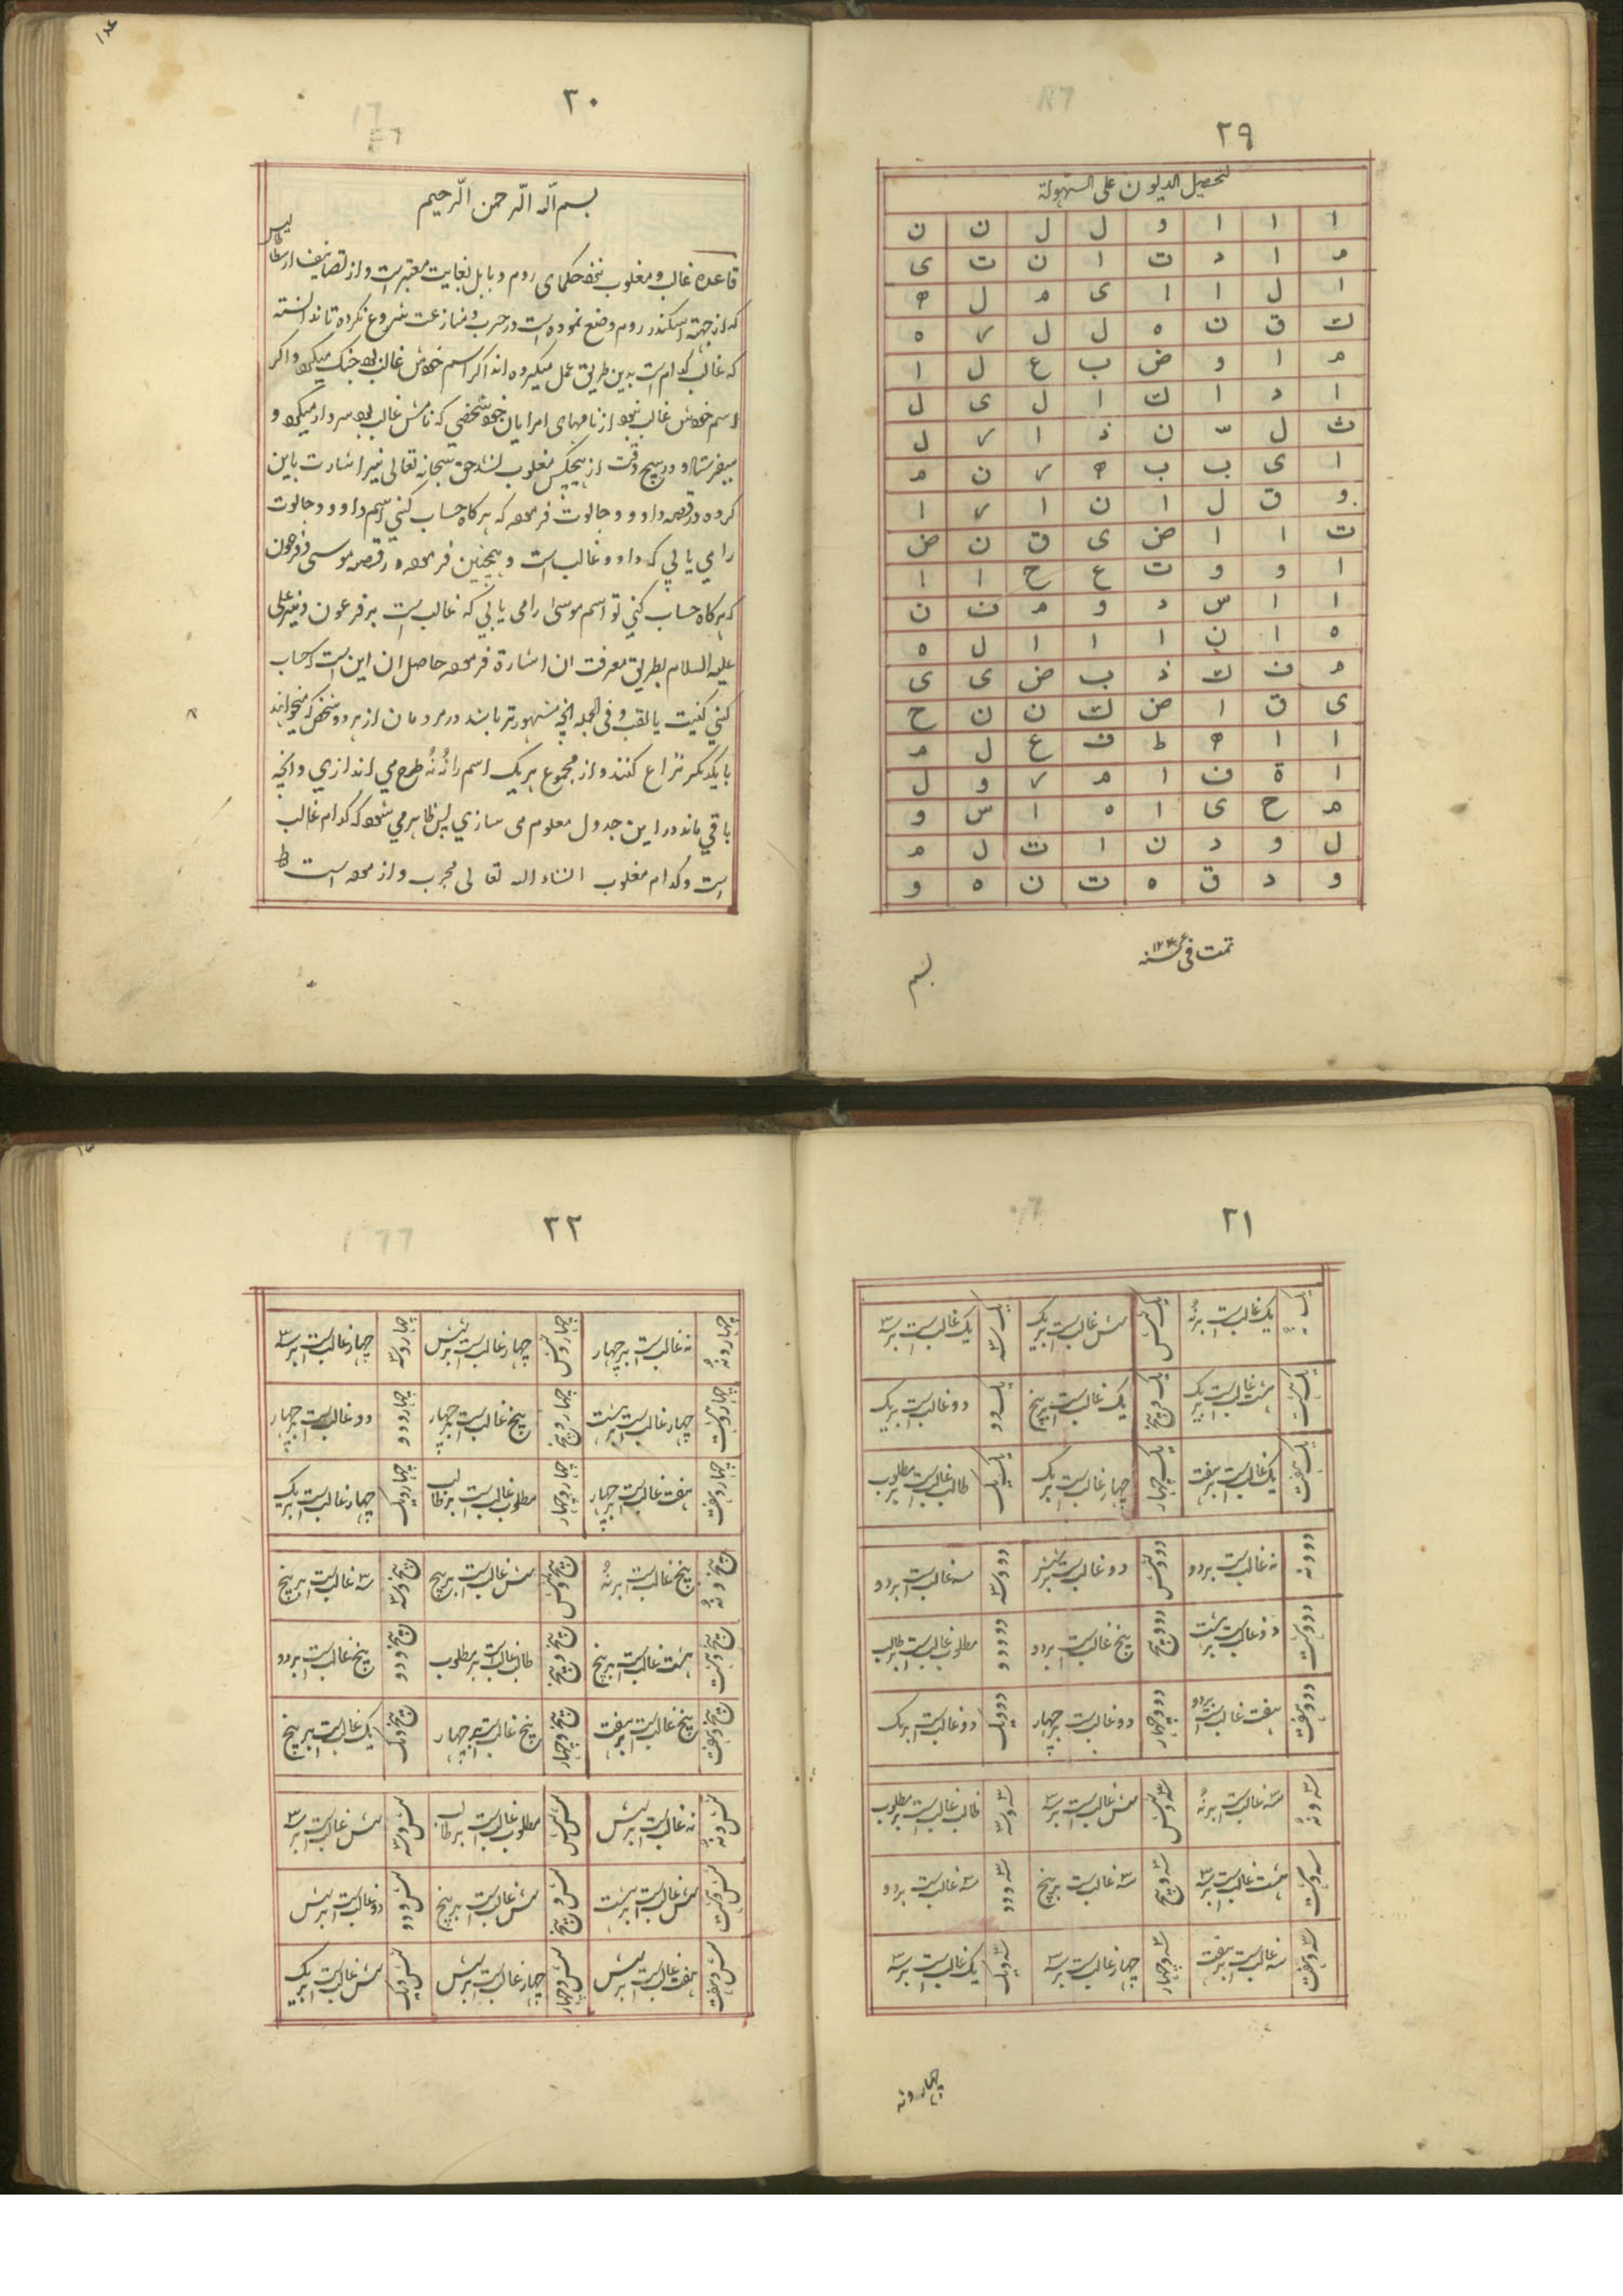 ٢٩
لتحصيل الديون على السهولة
ا ا ا و ل ل ن ن
م ا د ت ا ن ت ى
ا ل ا ا ى م ل ه
ك ق ن ه ل ل ر ه
م ا و ض ب ع ل ا
ا د ا ك ا ل ى ل
ث ل س ن ذ ا ر ل
ا ى ب ب ه ر ن م
و ق ل ا ن ا ر ا
ت ا ا ض ى ق ن ض
ا و و ت ع ح ا ا
ا ا س د و م ن ن
ه ا ن ا ا ا ل ه
م ف ك ذ ب ض ى ى
ى ق ا ض ك ن ن ح
ا ا ه ط ف ع ل م
ا ة ف ا م ر و ل
م ح ى ا ه ا س و
ل و د ن ا ت ل م
و د ق ه ت ن ه و
تمت فى سنه
بسم
٣٠
بسم الله الرحمن الرحيم
قاعده غالب و مغلوب نزد حكماى روم و بابل بغايت معتبر است و از تصانيف ارسطاطاليس
كه از جهة اسكندر روم وضع نموده است در حرب و منازعت شروع نكرده تا ندانسته
كه غالب كدام است بدين طريق عمل ميكرده اند اكر اسم خودش غالب بود جنك ميكرد و اكر
اسم خودش غالب نبود از نامهاى امرايان خود شخصى كه نامش غالب بود سردار ميكرد و
ميفرستاد و در هيچ وقت از هيچكس مغلوب نشد حق سبحانه تعالى نيز اشارت باين
كرده در قصه داوود و جالوت فرموده كه هركاه حساب كنى اسم داوود و جالوت
را مى يابى كه داوود غالب است و همچنين فرموده در قصه موسى و فرعون
كه هركاه حساب كنى تو اسم موسى را مى يابى كه غالب است بر فرعون و نيز على
عليه السلام بطريق معرفت ان اشارة فرموده حاصل ان اين است كه حساب
كنى كنيت يا لقب و فى الجمله انچه مشهورتر باشد در مردمان از هر دو شخص كه ميخواهند
با يكديكر نزاع كنند و از مجموع هر يك اسم را نُه نُه طرح مى اندازى و انچه
باقى ماند در اين جدول معلوم مى سازى پس ظاهر مى شود كه كدام غالب
است و كدام مغلوب انشاء الله تعالى مجرب و ازموده است
٢١
يك غالب است بر نُه يك و شش شش غالب است بر يك يك و سه يك غالب است بر سه
يك و هشت هشت غالب است بر يك يك و پنج يك غالب است بر پنج يك و دو دو غالب است بر يك
يك و هفت يك غالب است بر هفت يك و چهار چهار غالب است بر يك يك و يك طالب غالب است بر مطلوب
دو و نه نه غالب است بر دو دو و شش دو غالب است بر شش دو و سه سه غالب است بر دو
دو و هشت دو غالب است بر هشت دو و پنج پنج غالب است بر دو دو و دو مطلوب غالب است بر طالب
دو و هفت هفت غالب است بر دو دو و چهار دو غالب است بر چهار دو و يك دو غالب است بر يك
سه و نُه سه غالب است بر نُه سه و شش شش غالب است بر سه سه و سه طالب غالب است بر مطلوب
سه و هشت هشت غالب است بر سه سه و پنج سه غالب است بر پنج سه و دو سه غالب است بر دو
سه و هفت سه غالب است بر هفت سه و چهار چهار غالب است بر سه سه و يك يك غالب است بر سه
چهار و نه
٢٢
چهار و نُه نه غالب است بر چهار چهار و شش چهار غالب است بر شش چهار و سه چهار غالب است بر سه
چهار و هشت چهار غالب است بر هشت چهار و پنج پنج غالب است بر چهار چهار و دو دو غالب است بر چهار
چهار و هفت هفت غالب است بر چهار چهار و چهار مطلوب غالب است بر طالب چهار و يك چهار غالب است بر يك
پنج و نُه پنج غالب است بر نُه پنج و شش شش غالب است بر پنج پنج و سه سه غالب است بر پنج
پنج و هشت هشت غالب است بر پنج پنج و پنج طالب غالب است بر مطلوب پنج و دو پنج غالب است بر دو
پنج و هفت پنج غالب است بر هفت پنج و چهار پنج غالب است بر چهار پنج و يك يك غالب است بر پنج
شش و نُه نه غالب است بر شش شش و شش مطلوب غالب است بر طالب شش و سه شش غالب است بر سه
شش و هشت شش غالب است بر هشت شش و پنج شش غالب است بر پنج شش و دو دو غالب است بر شش
شش و هفت هفت غالب است بر شش شش و چهار چهار غالب است بر شش شش و يك شش غالب است بر يك